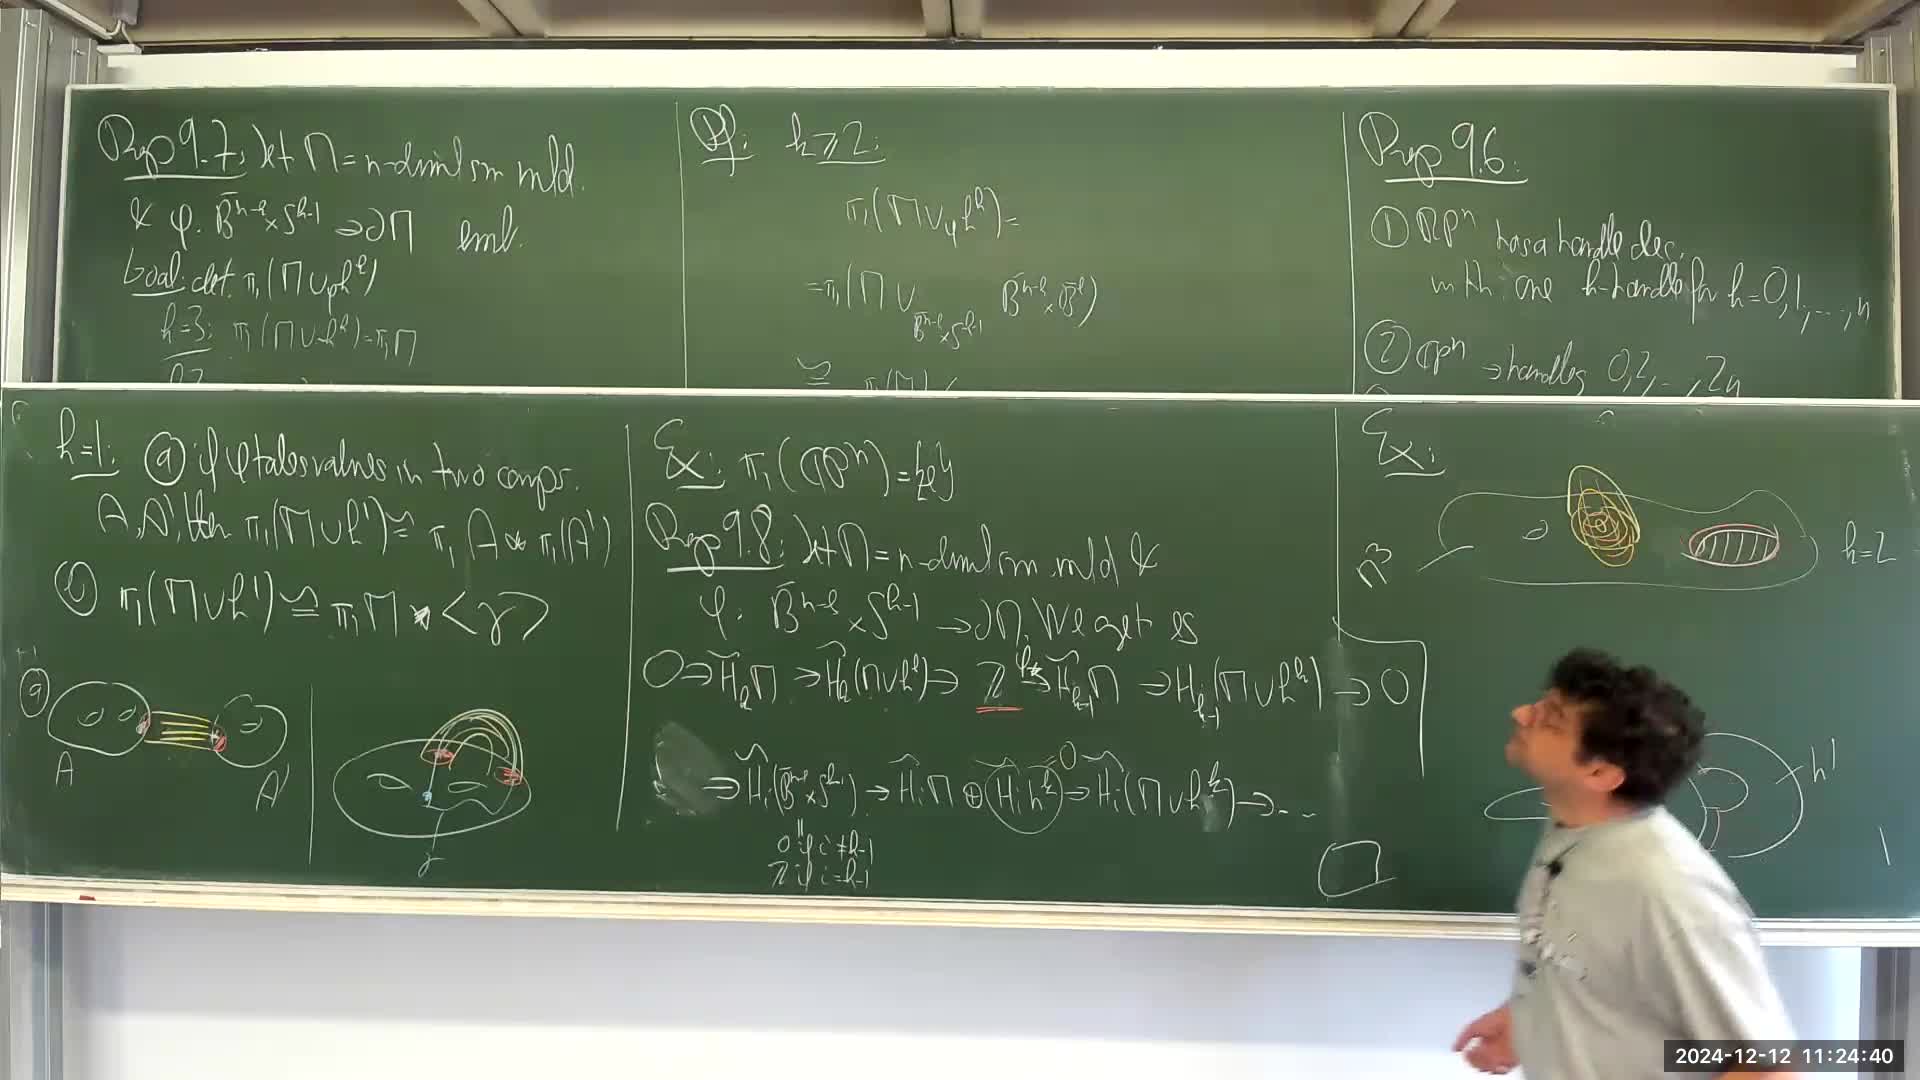 Prop 9.7: Let M = n-diml sm mfd.
& φ: B̄ⁿ⁻ᵏ × Sᵏ⁻¹ → ∂M emb.
Goal: det. π₁(M ∪φ hᵏ)
k=3: π₁(M ∪ hᵏ) = π₁M
Pf: k ≥ 2:
π₁(M ∪φ hᵏ) =
= π₁(M ∪ B̄ⁿ⁻ᵏ × B̄ᵏ)
B̄ⁿ⁻ᵏ × Sᵏ⁻¹
≅ π₁(M) /
Prop 9.6:
① RPⁿ has a handle dec.
with one k-handle for k=0,1,...,n
② CPⁿ → handles 0,2,...,2n
k=1: ⓐ if φ takes values in two comps.
A, A', then π₁(M ∪ h¹) ≅ π₁A * π₁(A')
ⓑ π₁(M ∪ h¹) ≅ π₁M * <γ>
ⓐ
A
A'
γ
Ex: π₁(CPⁿ) = {e}
Prop 9.8: Let M = n-diml sm. mfd &
φ: B̄ⁿ⁻ᵏ × Sᵏ⁻¹ → ∂M. We get es
0 → H̃ₖM → H̃ₖ(M ∪ hᵏ) → ℤ →φ* H̃ₖ₋₁M → Hₖ₋₁(M ∪ hᵏ) → 0
→ H̃ᵢ(B̄ⁿ⁻ᵏ × Sᵏ⁻¹) → H̃ᵢM ⊕ H̃ᵢhᵏ → H̃ᵢ(M ∪ hᵏ) → ...
=0
0 if i ≠ k-1
ℤ if i = k-1
Ex:
M³
k=2
h¹
2024-12-12 11:24:40